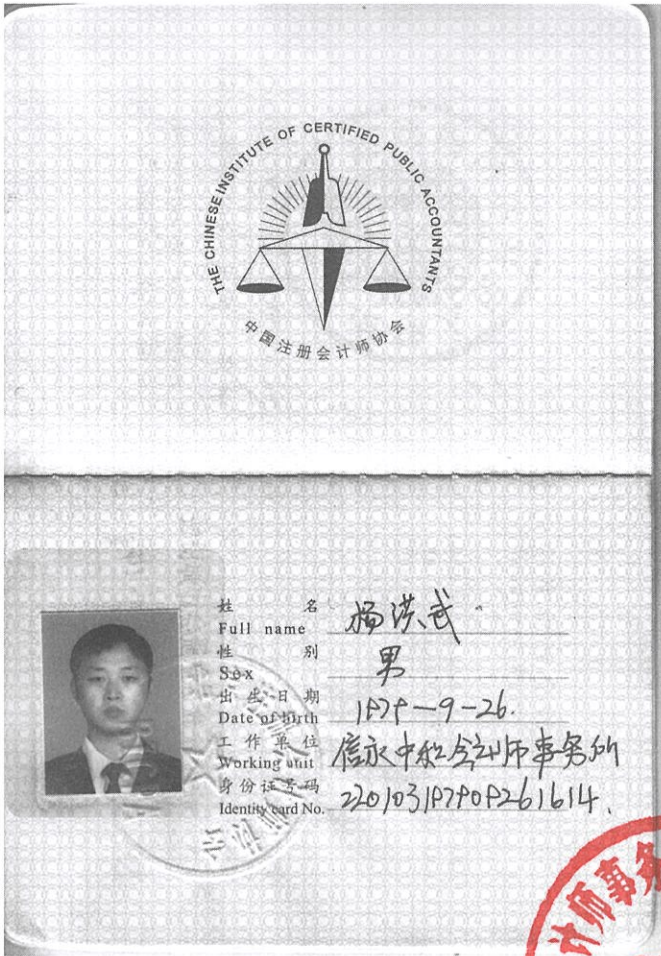 THE CHINESE INSTITUTE OF CERTIFIED PUBLIC ACCOUNTANTS
中国注册会计师协会
姓 名 杨洪武
Full name
性 别 男
Sex
出生日期
Date of birth
工作单位 信永中和会计师事务所
Working unit
身份证号码
Identity card No.
计师事务